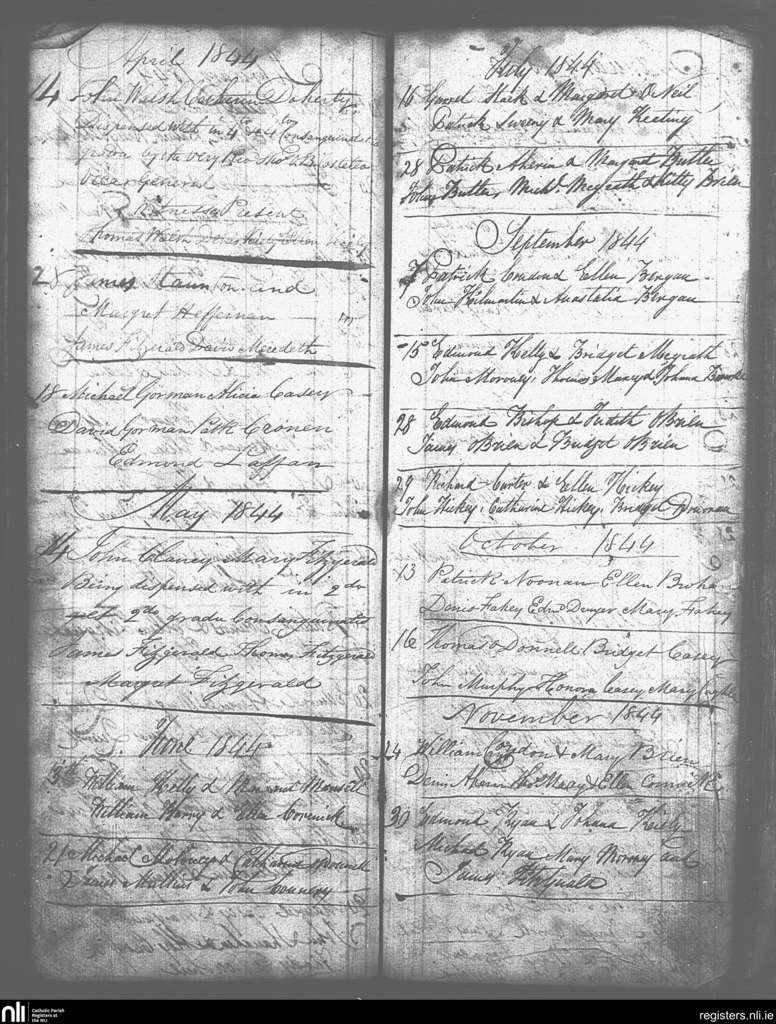 April 1844
14 John Walsh Catherine Doherty
dispensed with in 4 & 4 Consanguinitatis
gradu by the very Rev
Vicar General
Witnesses Present
Thomas Walsh
28 James Staunton and
Margret Heffernan
James Fitzgerald David Meredeth
18 Michael Gorman Alicia Casey
David Gorman Patk Cronen
Edmond Laffan
May 1844
14 John Clancy Mary Fitzgerald
Being dispensed with in 2do
2do gradu Consanguinitatis
James Fitzgerald Thomas Fitzgerald
Margret Fitzgerald
June 1844
William Kelly & Mansell
William & Ellen
21 Michael & Catharine
& John Connery
July 1844
16 Stack & Margaret O Neil
Patrick Sweeny & Mary Keeting
28 Patrick Aherin & Margaret Butler
John Butler, Michl. Megrath & Kitty Brien
September 1844
7 Patrick Condon & Ellen Bergan
John Kilmartin & Anastatia Bergan
15 Edmond Kelly & Bridget Megrath
John Moroney, Thomas & Johana Bourke
28 Edmond Bishop & Judith OBrien
James OBrien & Bridget OBrien
29 Richard Carter & Ellen Hickey
John Hickey, Catharine Hickey, Bridget Donovan
October 1844
13 Patrick Noonan Ellen
Denis Fahey Edmd Dwyer Mary Fahey
16 Thomas O Donnell Bridget Casey
John Murphy Honora Casey Mary
November 1844
24 William Condon & Mary Brien
Denis Ahern & Ellen
30 Edmond Ryan & Johana Kiely
Michael Ryan Mary Moroney and
James Fitzgerald
nli
Catholic Parish
Registers at
the NLI
registers.nli.ie